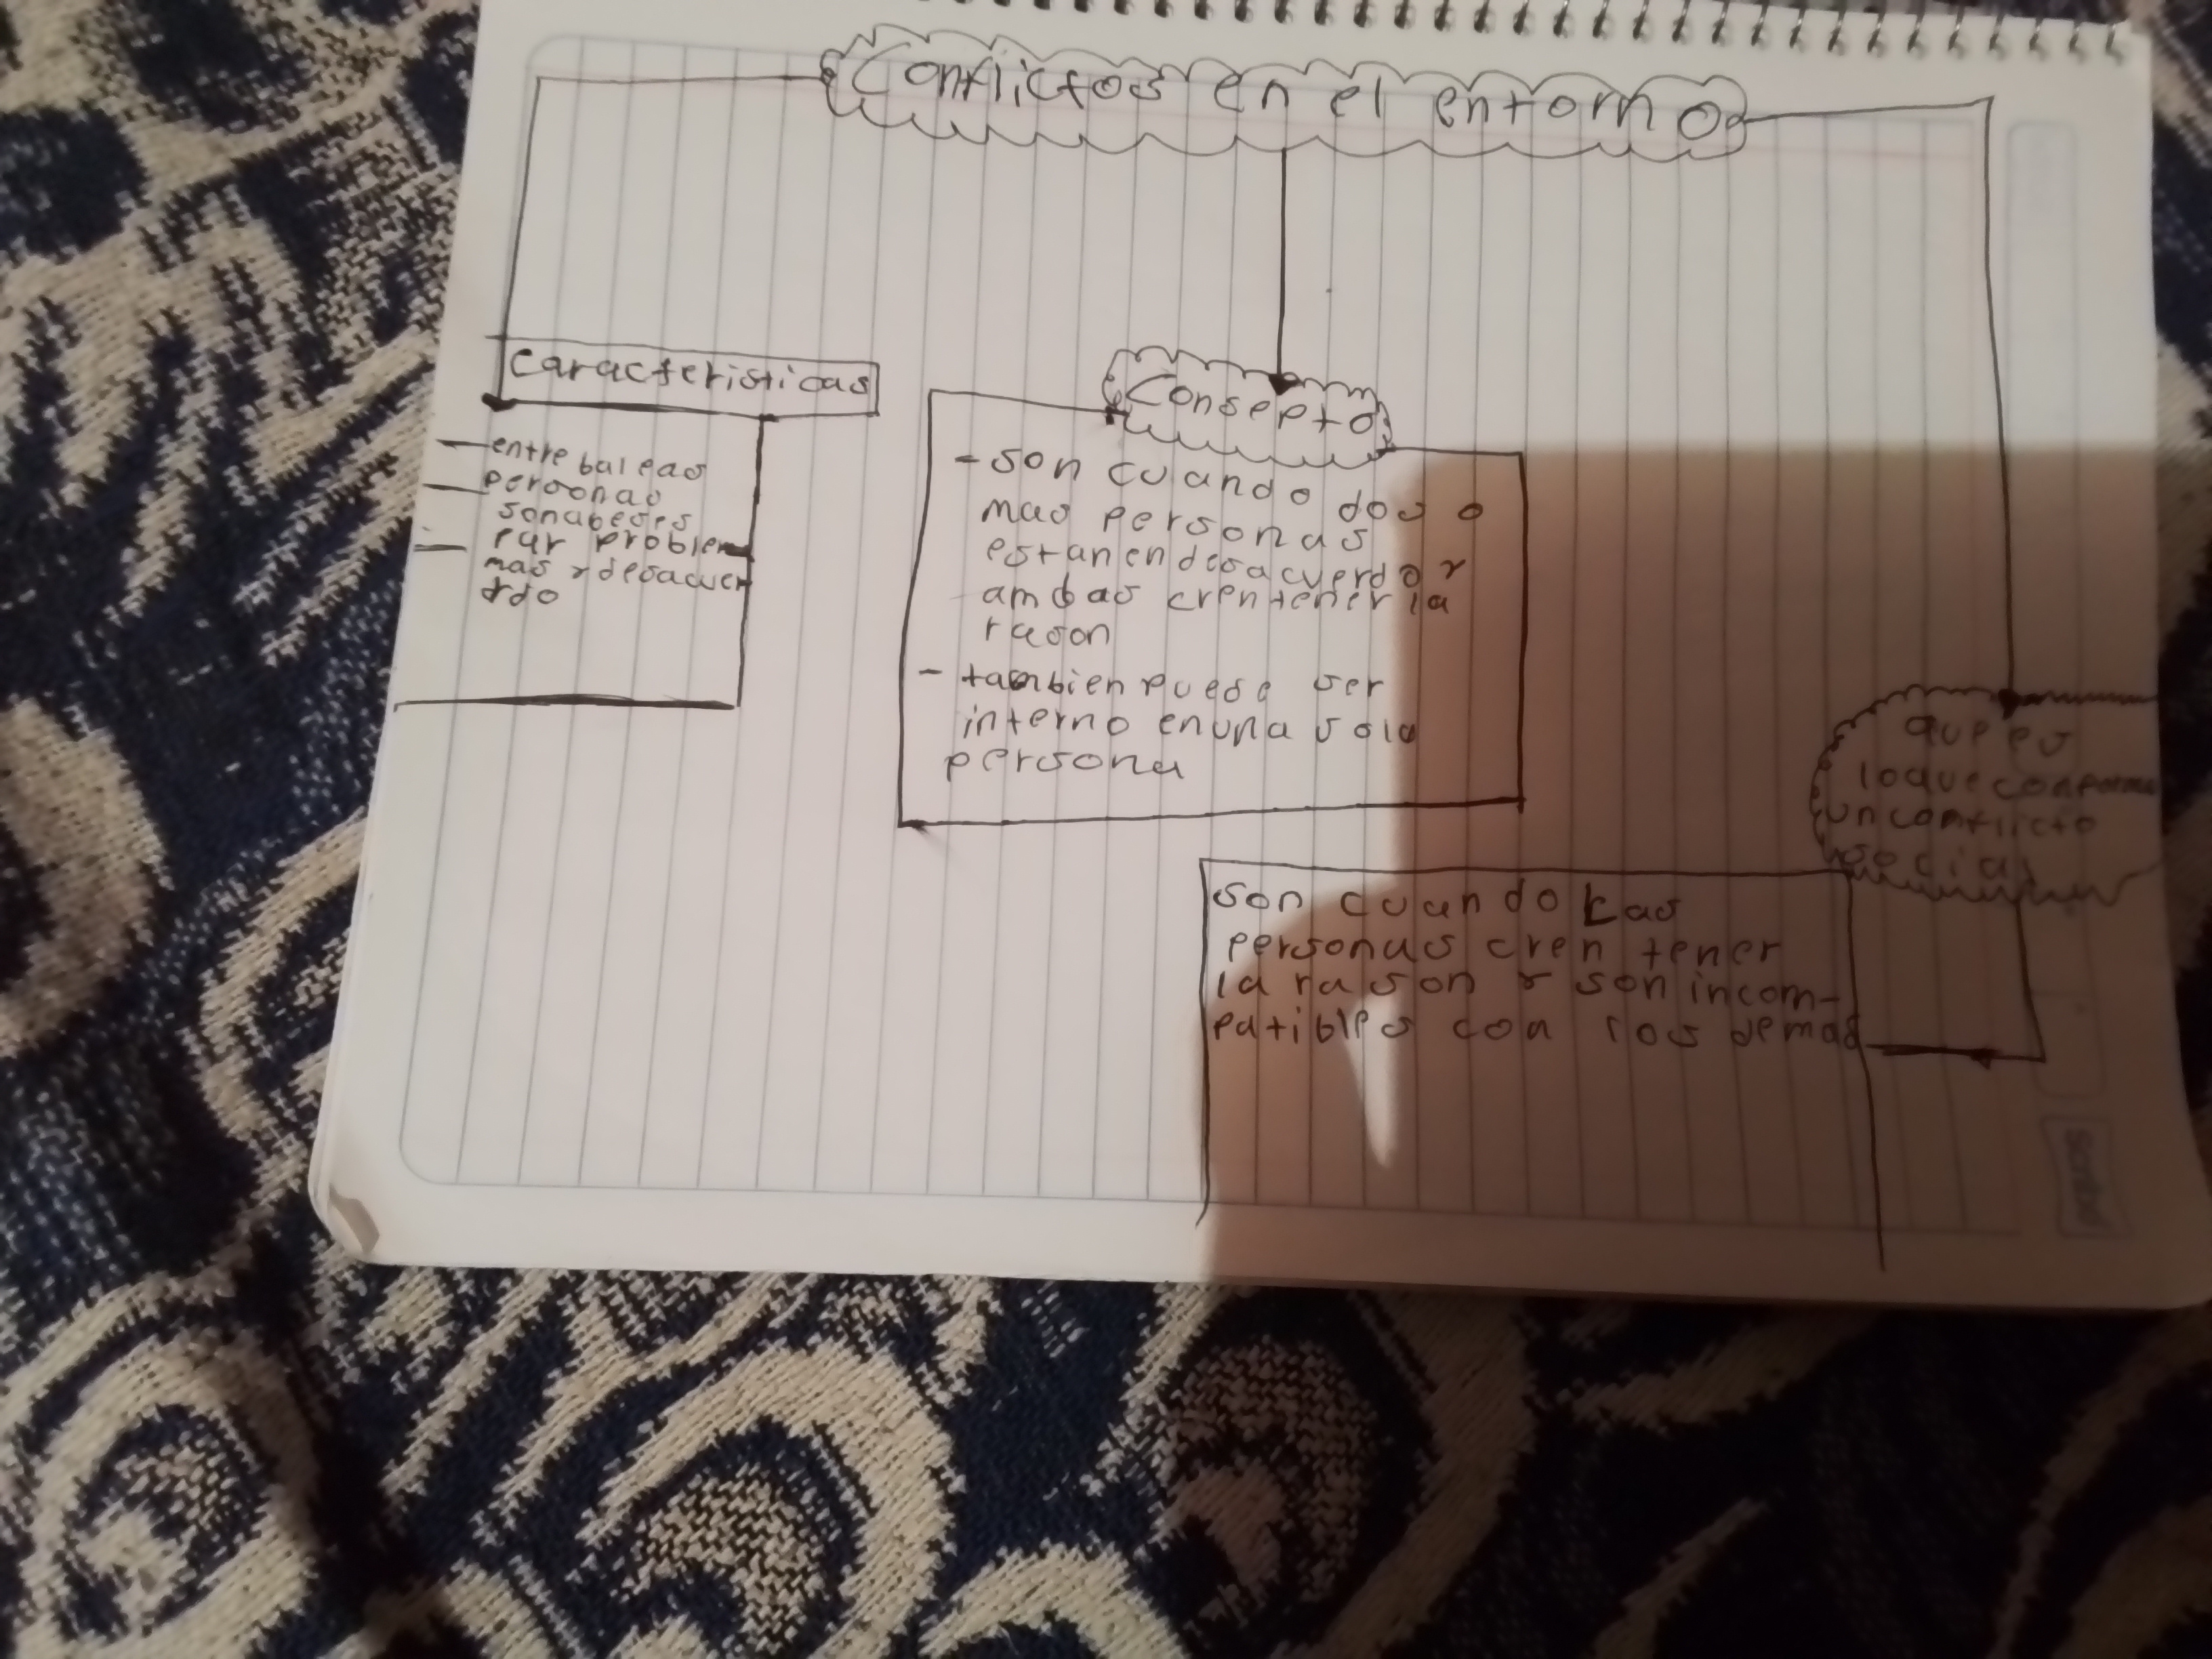 Conflictos en el entorno
Caracteristicas
entre
personas
son abeses
por problem
mas y desacuer
rdo
Consepto
- son cuando dos o
mas personas
estan en desacuerdo y
ambas cren tener la
rason
- tambien puede ser
interno en una sola
persona
que es
lo que conforma
un conflicto
social
son cuando Las
personas cren tener
la rason y son incom-
patibles con los demas
Scribe